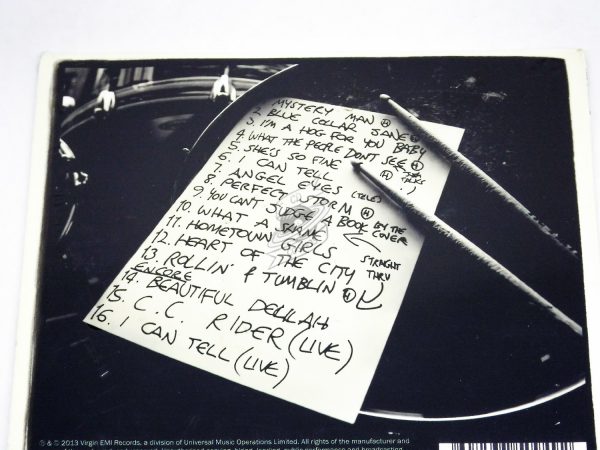 MYSTERY MAN (H)
2. BLUE COLLAR JANE
3. I'M A HOG FOR YOU BABY
4. WHAT THE PEOPLE DON'T SEE (H)
5. SHE'S SO FINE
6. I CAN TELL (H)
7. ANGEL EYES (TELE)
8. PERFECT STORM (H)
9. YOU CAN'T JUDGE A BOOK BY THE COVER
10. WHAT A SHAME
11. HOMETOWN GIRLS STRAIGHT THRU
12. HEART OF THE CITY
13. ROLLIN' & TUMBLIN (H)
ENCORE
14. BEAUTIFUL DELILAH
15. C.C. RIDER (LIVE)
16. I CAN TELL (LIVE)
℗ & © 2013 Virgin EMI Records, a division of Universal Music Operations Limited. All rights of the manufacturer and